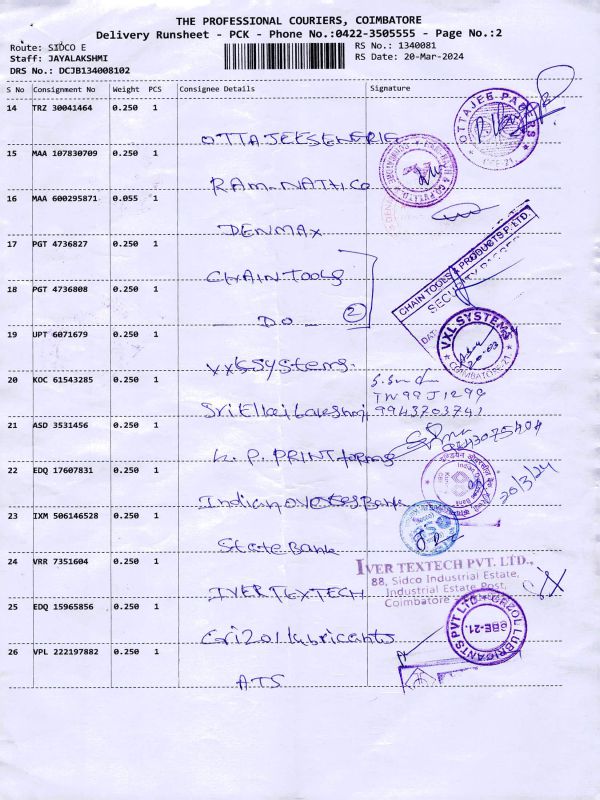 THE PROFESSIONAL COURIERS, COIMBATORE
Delivery Runsheet - PCK - Phone No.:0422-3505555 - Page No.:2
Route: SIDCO E RS No.: 1340081
Staff: JAYALAKSHMI RS Date: 20-Mar-2024
DRS No.: DCJB134008102
S No Consignment No Weight PCS Consignee Details Signature
14 TRZ 30041464 0.250 1
OTTAJEE PAPERS
15 MAA 107830709 0.250 1
RAM-NATH.Co
16 MAA 600295871 0.055 1
DENMAX
17 PGT 4736827 0.250 1
CHAIN TOOLS
CHAIN TOOLS & PRODUCTS P.LTD.
SECURITY
18 PGT 4736808 0.250 1
DO 2
19 UPT 6071679 0.250 1
VXL SYSTEMS
COIMBATORE-21
VXL Systems
20 KOC 61543285 0.250 1
TN99J1299
Sri Ellai Lakshmi 9943703741
21 ASD 3531456 0.250 1
K. P. PRINT forms
22 EDQ 17607831 0.250 1
20/3/24
Indian Overseas Bank
23 IXM 506146528 0.250 1
State Bank
24 VRR 7351604 0.250 1
IVER TEXTECH PVT. LTD.,
88, Sidco Industrial Estate,
Industrial Estate Post,
Coimbatore
IVER TEXTECH
25 EDQ 15965856 0.250 1
GRIZOL LUBRICANTS PVT LTD
CBE-21.
Grizol lubricants
26 VPL 222197882 0.250 1
ATS